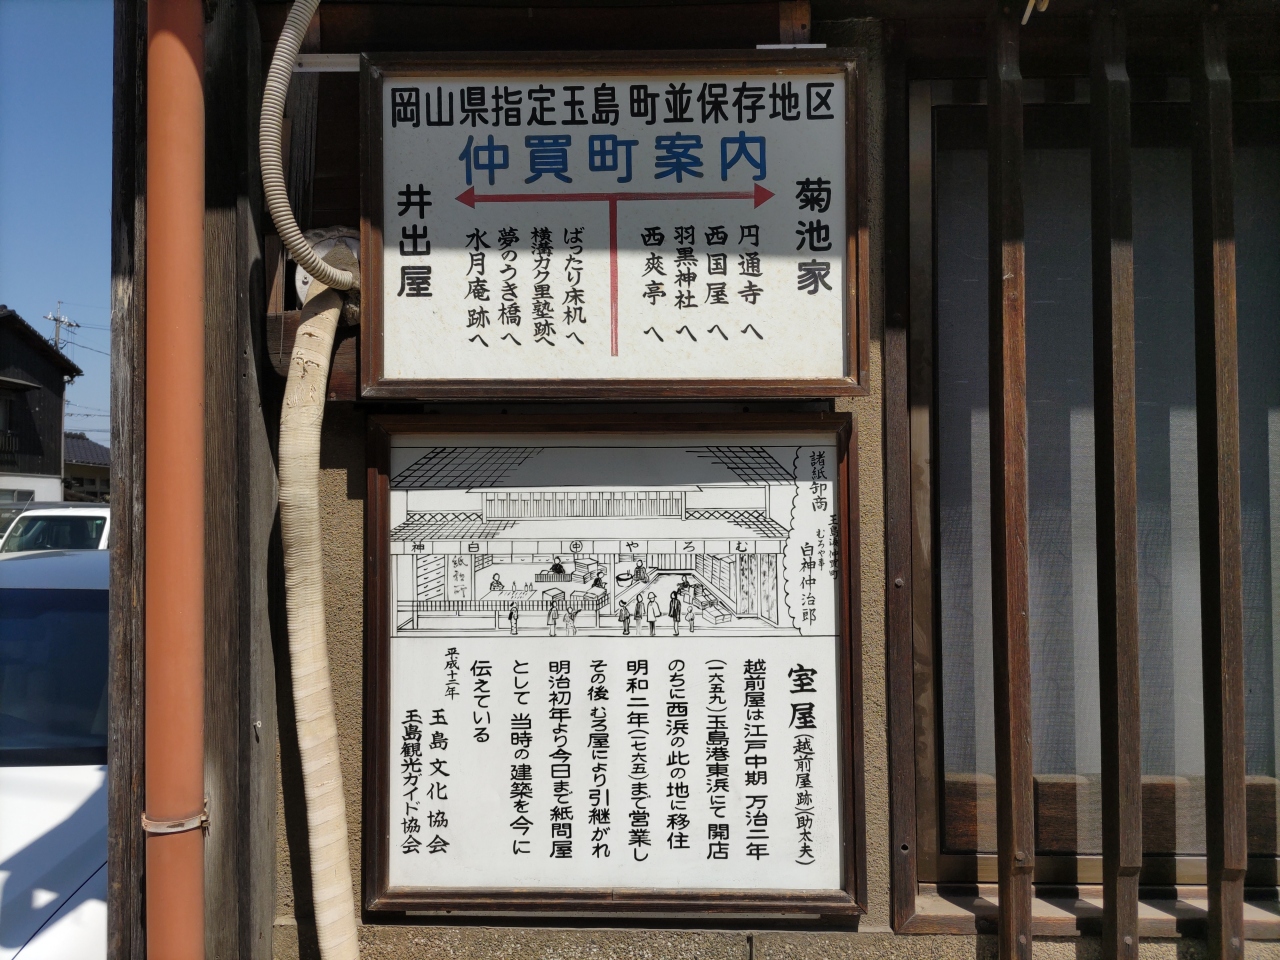 岡山県指定玉島町並保存地区
仲買町案内
菊池家
円通寺へ
西国屋へ
羽黒神社へ
西爽亭へ
ばったり床机へ
横溝カク里塾跡へ
夢のうき橋へ
水月庵跡へ
井出屋
諸紙卸商
むろや事
白神仲治郎
むろや㊥白神
室屋(越前屋跡)(助太夫)
越前屋は江戸中期 万治二年
(一六五九)玉島港東浜にて開店
のちに西浜の此の地に移住
明和二年(一七六五)まで営業し
その後 むろ屋により引継がれ
明治初年より今日まで紙問屋
として 当時の建築を今に
伝えている
平成十二年
玉島文化協会
玉島観光ガイド協会